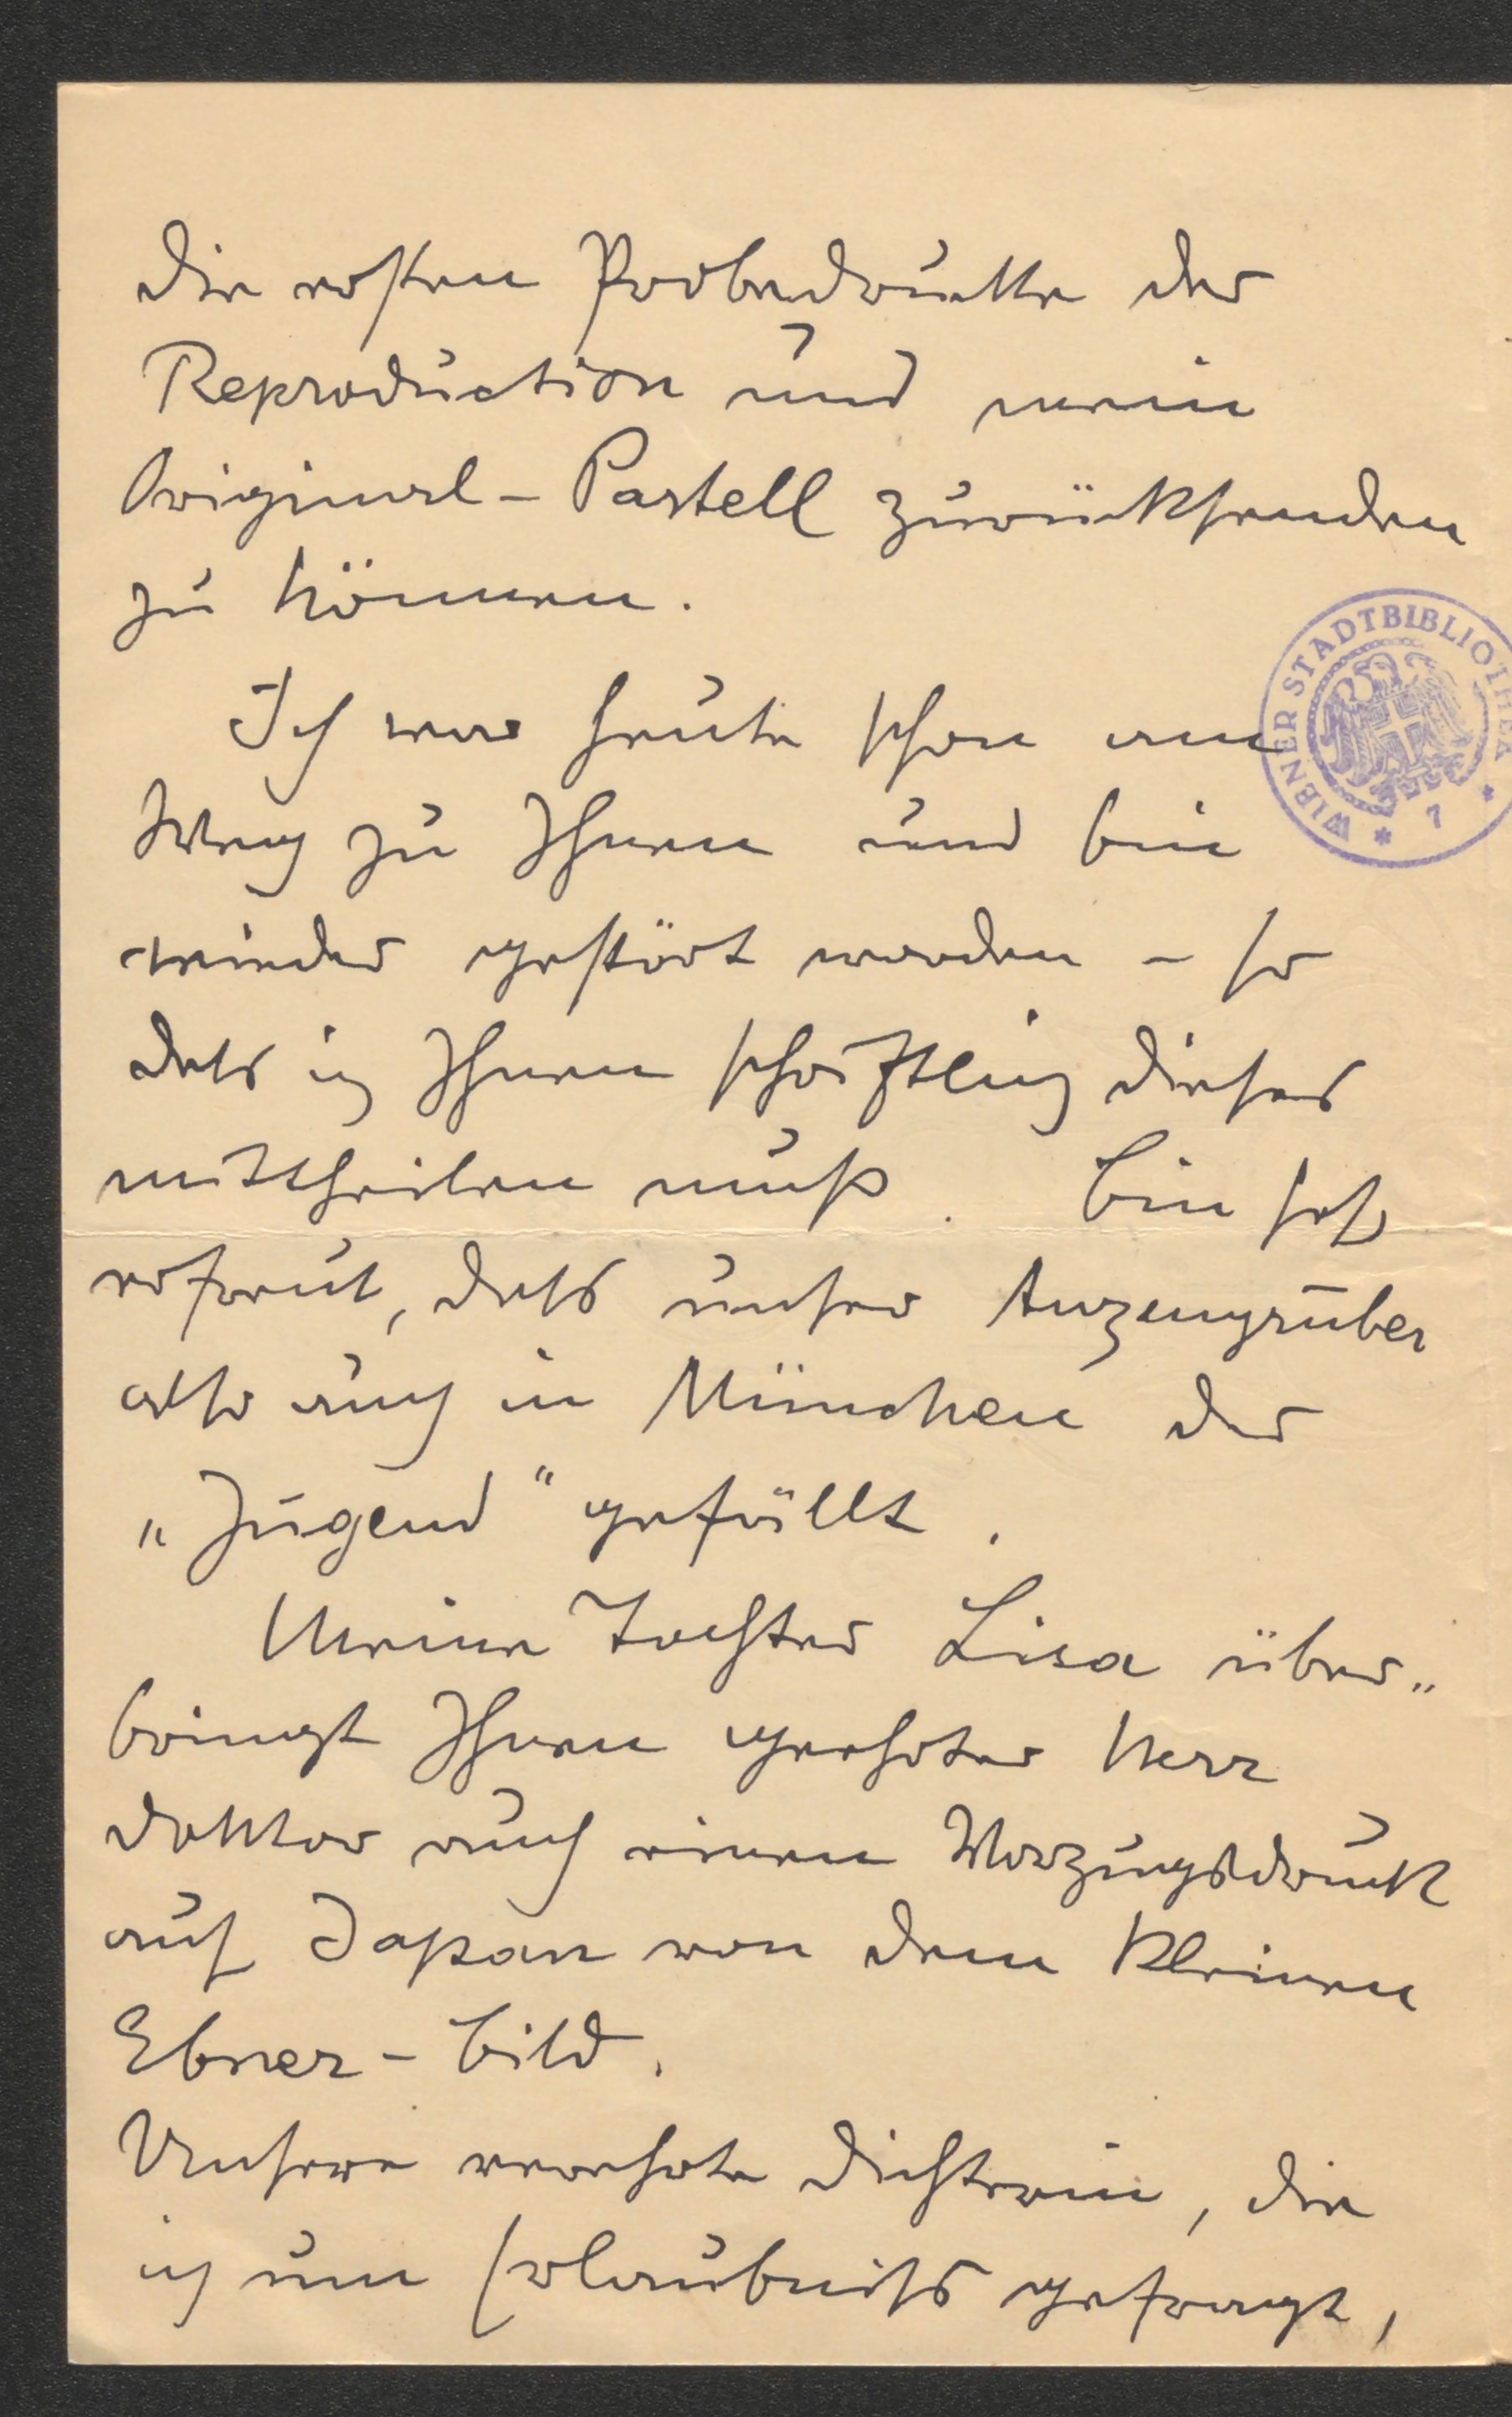 die ersten Probedrucke der
Reproduction und mein
Original-Pastell zurücksenden
zu können.
Ich war heute schon am
Weg zu Ihnen und bin
wieder gestört worden – so
dass ich Ihnen schriftlich dieses
mittheilen muß. Bin sehr
erfreut, dass unser Anzengruber
also auch in München der
„Jugend“ gefällt.
Meine Tochter Lisa über„
bringt Ihnen geehrter Herr
Doktor auch einen Vorzugsdruck
auf Japan von dem kleinen
Ebner-Bild.
Unsere verehrte Dichterin, die
ich um Erlaubniss gefragt,
WIENER STADTBIBLIOTHEK
* 7 *